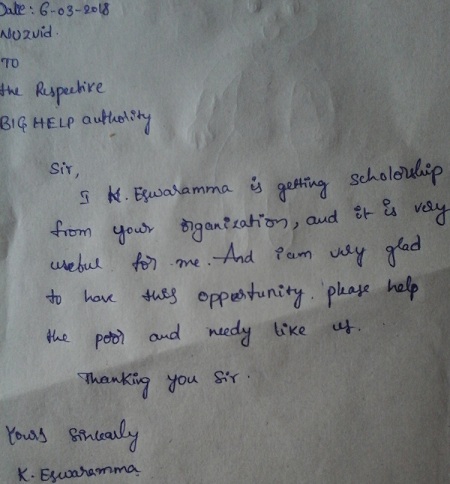 Date: 6-03-2018
NUZvid.
TO
the Respective
BIG HELP authority
Sir,
I K. Eswaramma is getting scholorship
from your organization, and it is very
useful for me. And i am very glad
to have this opportunity. please help
the poor and needy like us.
Thanking you Sir.
Yours Sincearly
K. Eswaramma